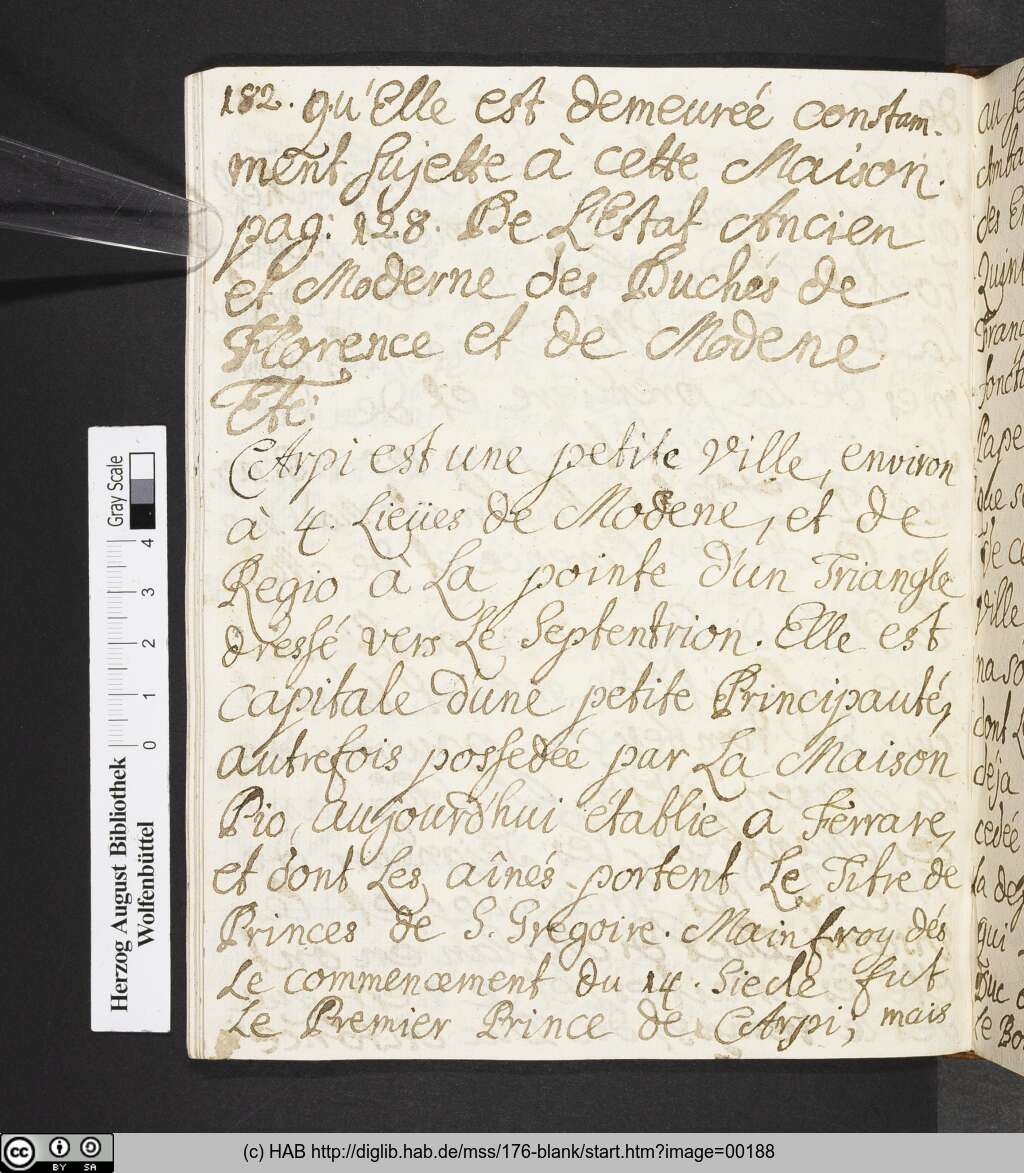 182. qu'Elle est demeureé constam-
ment sujette à cette Maison.
pag: 128. De L'Estat Ancien
et Moderne des Duchés de
Florence et de Modene
Etc:
Carpi est une petite Ville, environ
à 4. Lieües de Modene, et de
Regio à La pointe d'un Triangle
dressé vers Le Septentrion. Elle est
capitale d'une petite Principauté,
autrefois possedeé par La Maison
Pio, aujourd'hui établie à Ferrare,
et dont Les aînés portent Le Titre de
Princes de S. Gregoire. Mainfroy dés
Le commencement du 14. Siecle fut
Le Premier Prince de Carpi, mais
au
des
Quint
Franc
foncti
Pape
que
de ce
ville
na so
dont L
déja
cedée
la
qui
Duc
Le Bo
Herzog August Bibliothek
Wolfenbüttel
Gray Scale
0 1 2 3 4
cc BY SA
(c) HAB http://diglib.hab.de/mss/176-blank/start.htm?image=00188